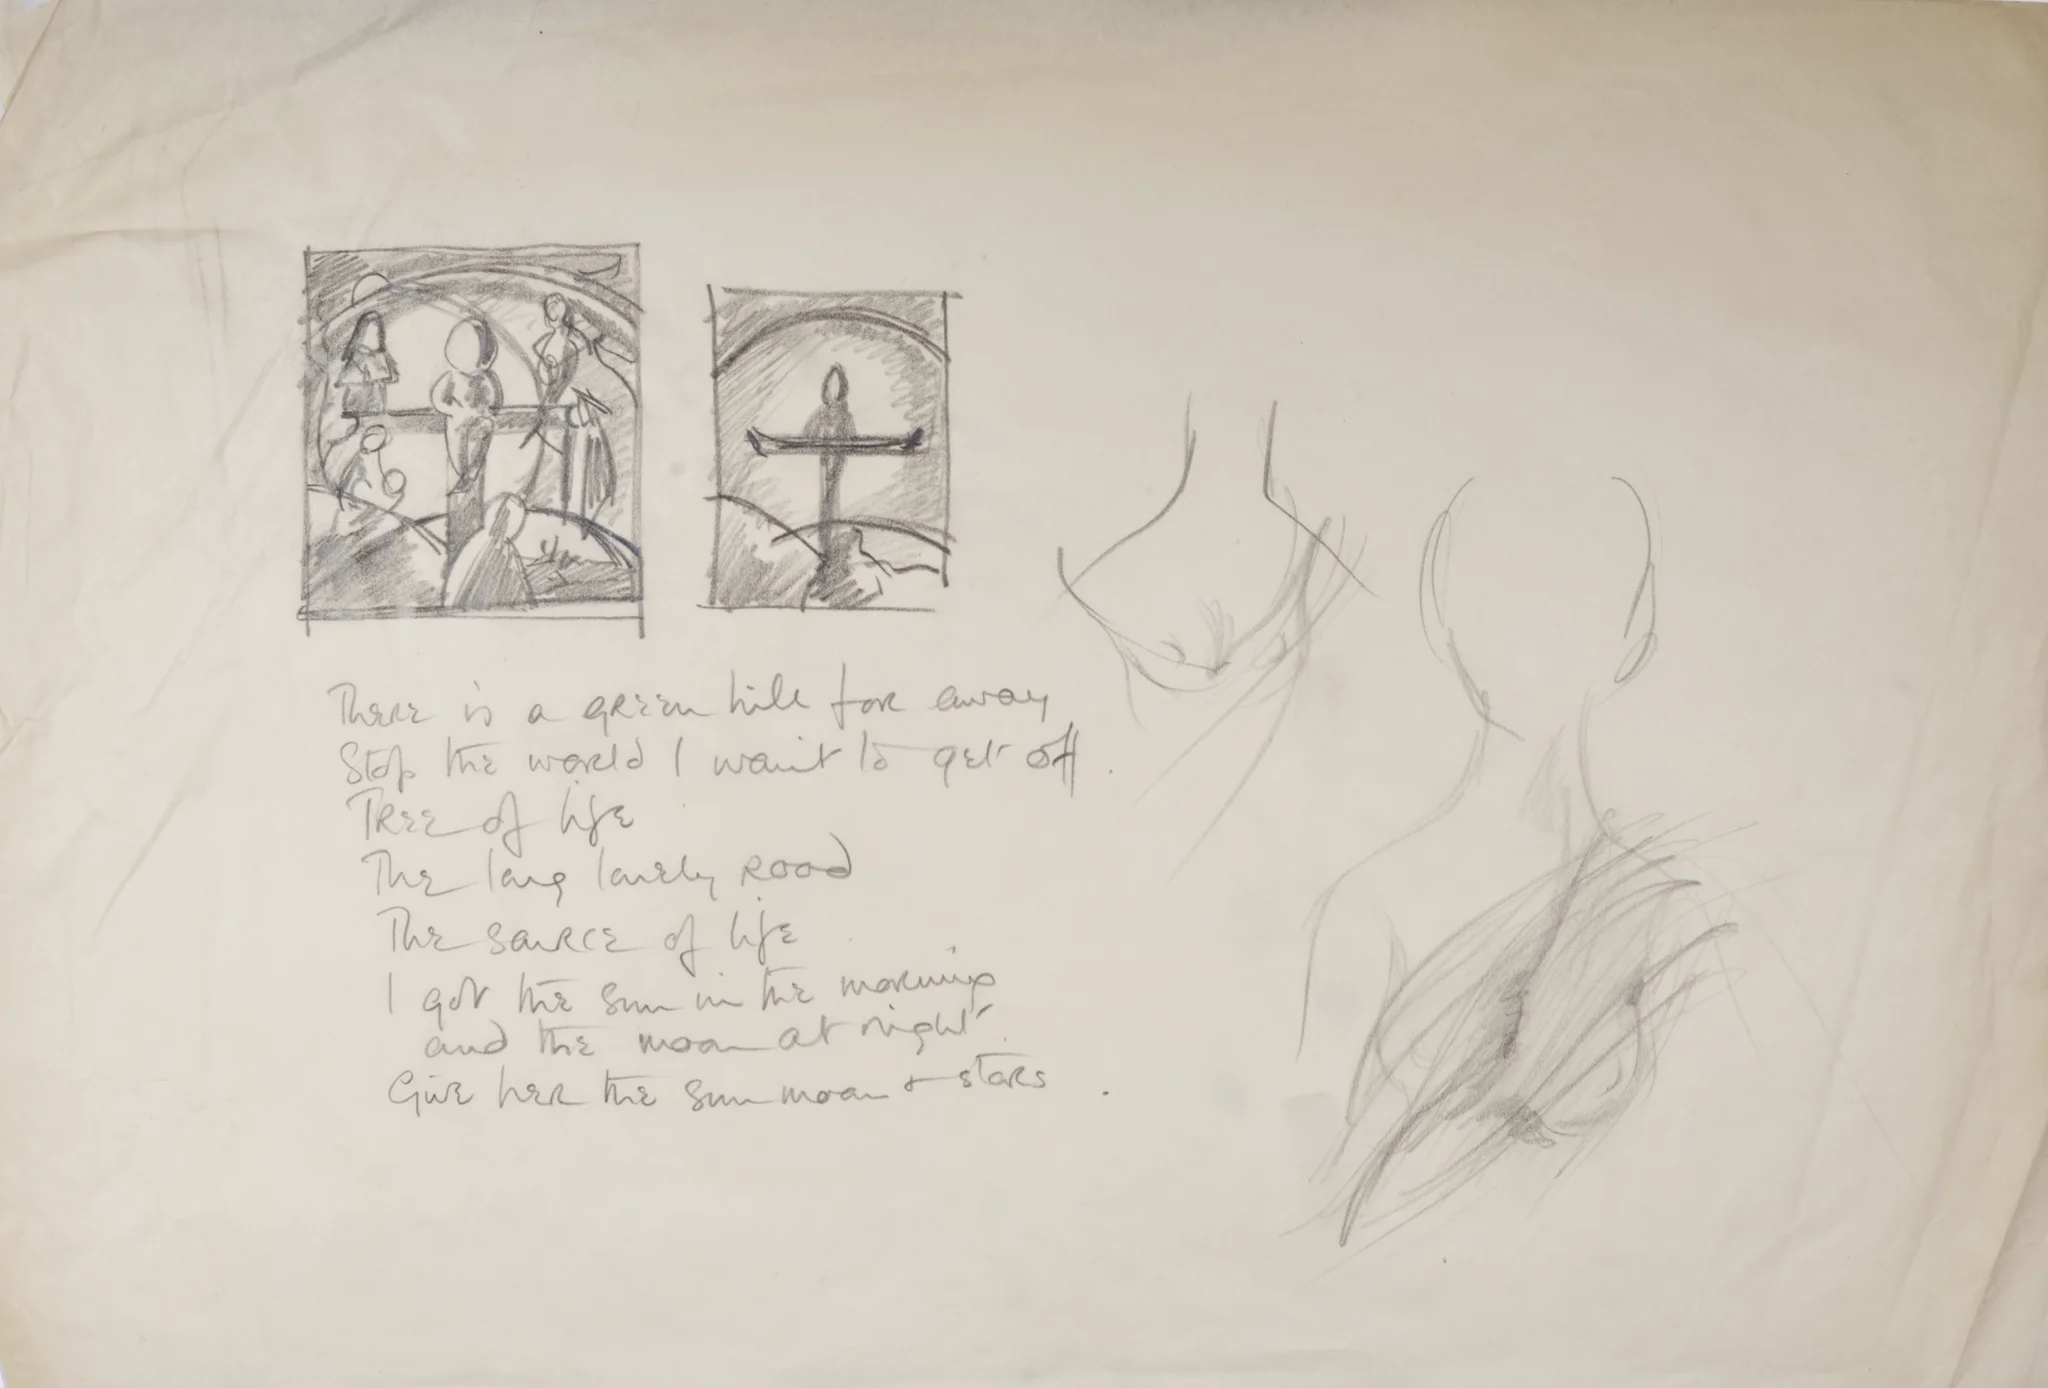 There is a green hill far away
Stop the world I want to get off.
Tree of life
The long lonely road
The source of life
I got the sun in the morning
and the moon at night.
Give her the sun moon + stars.